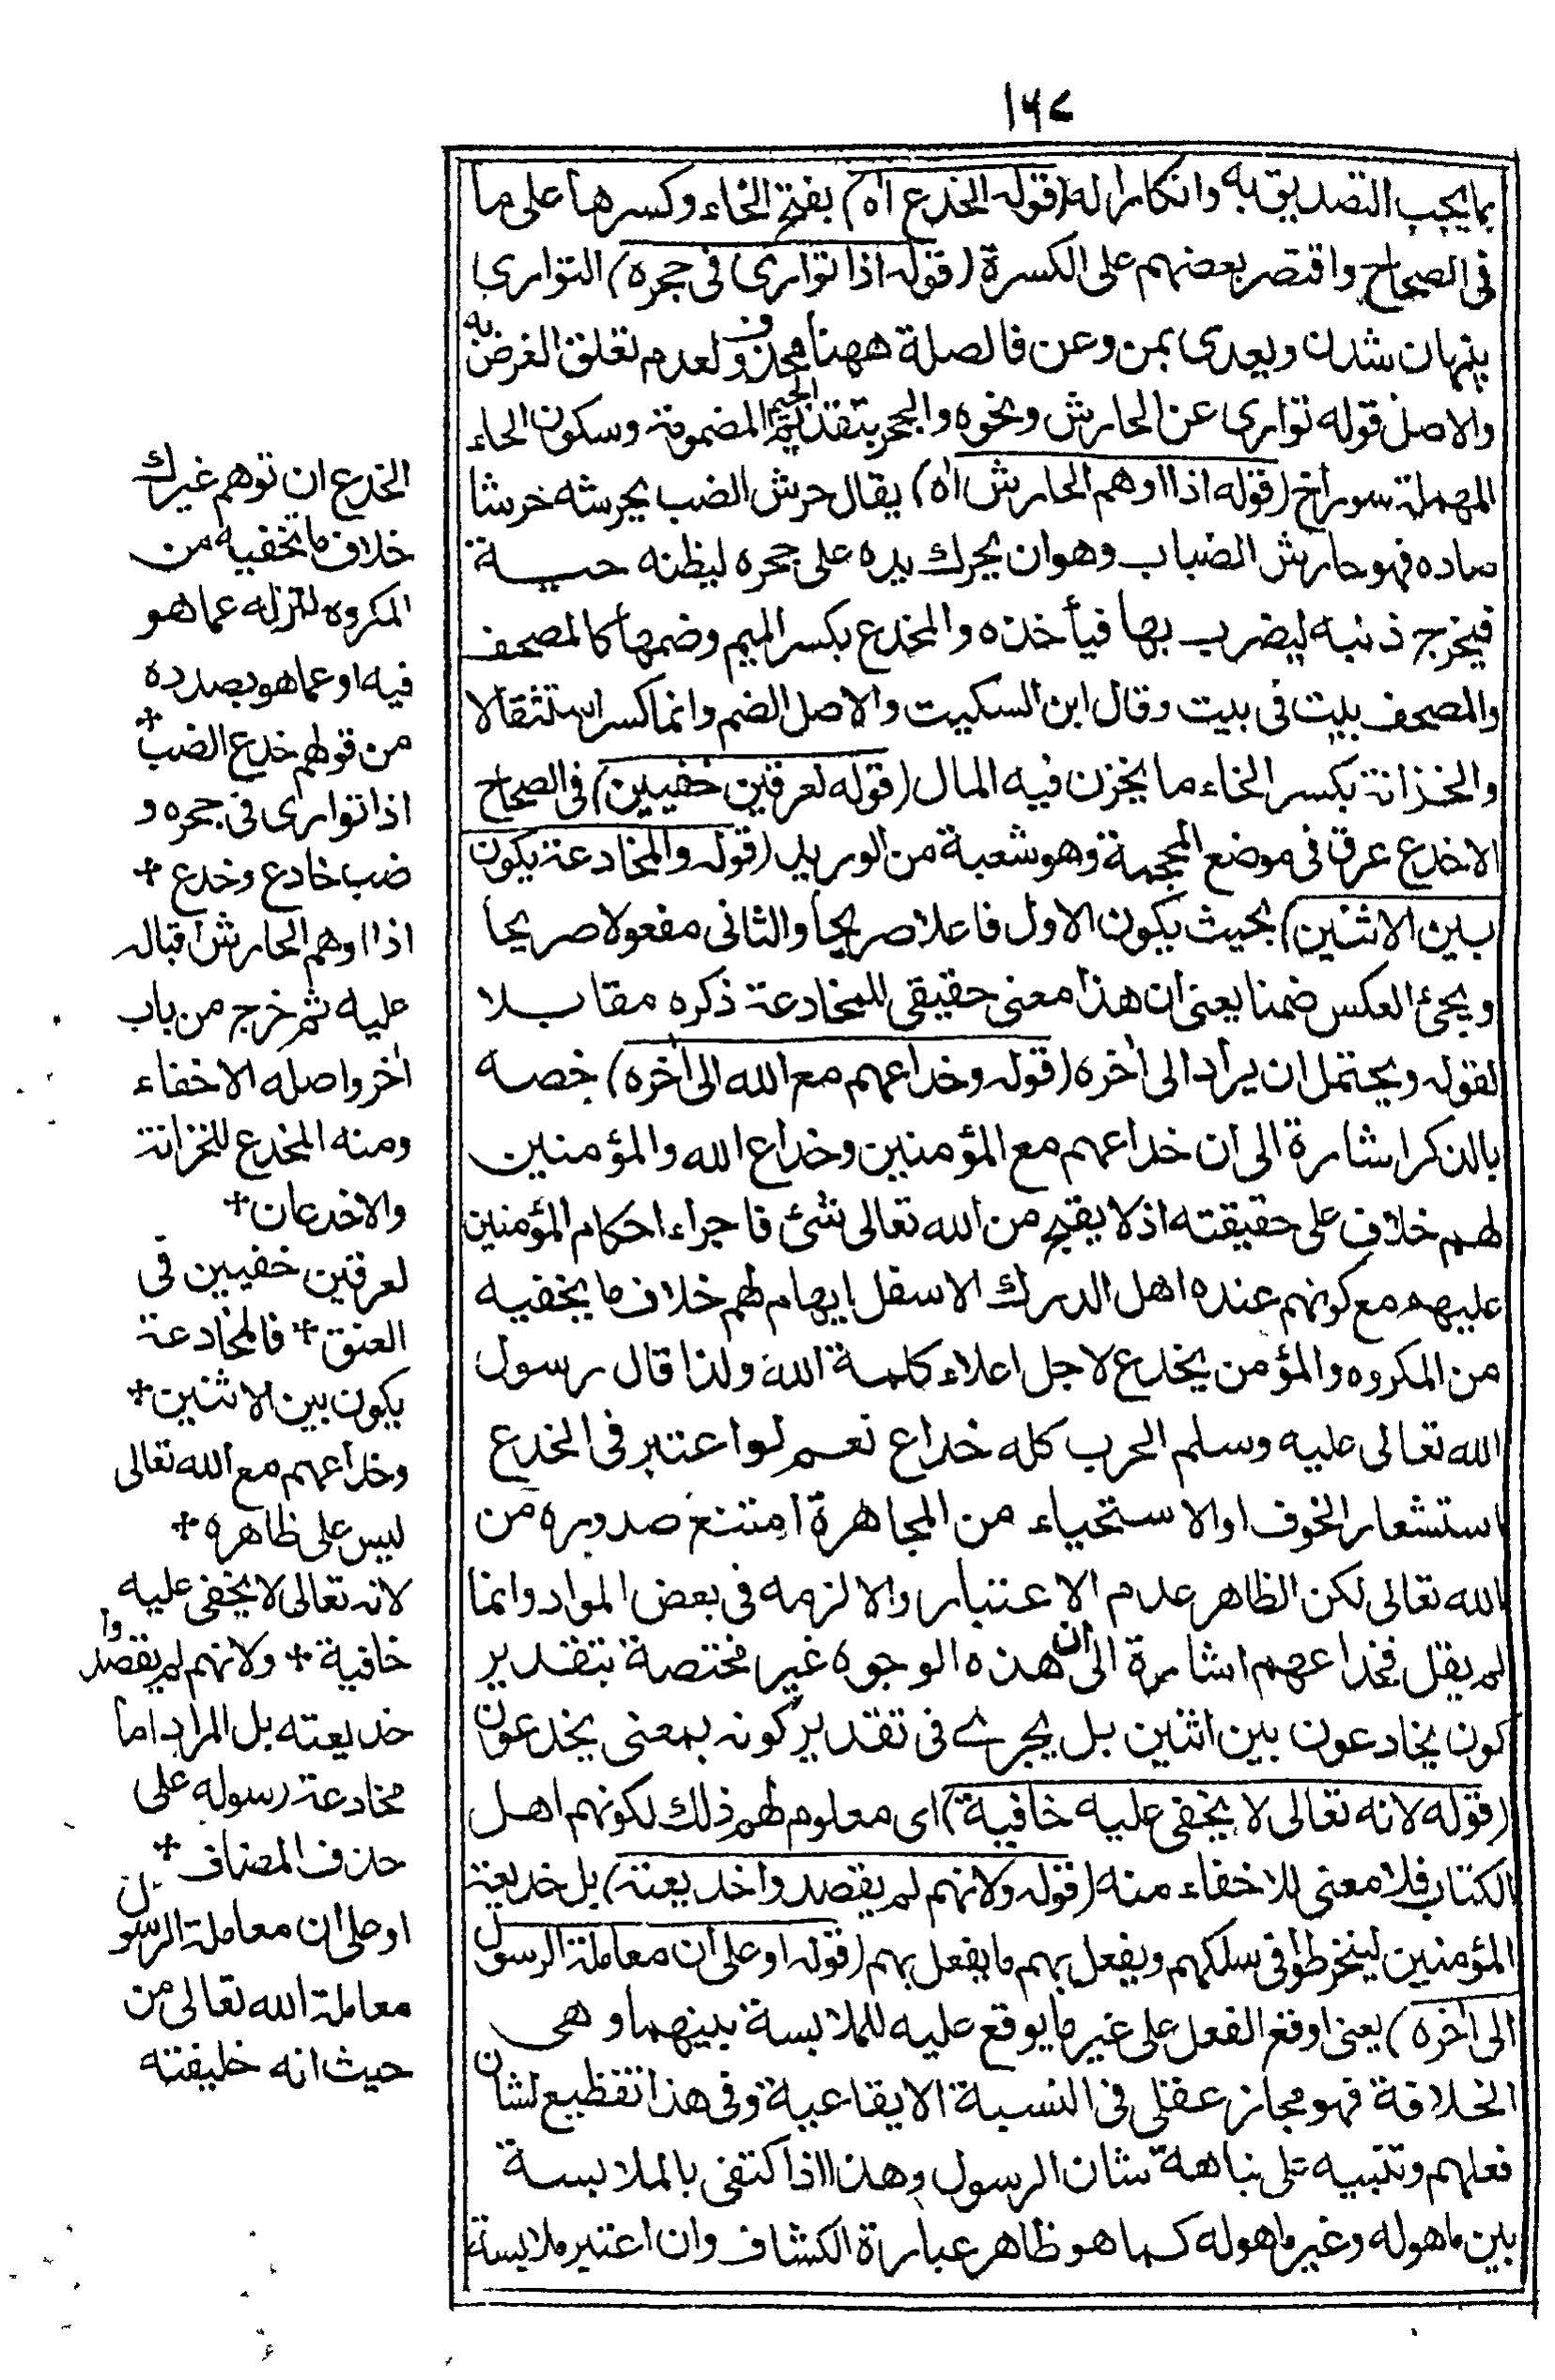 ١٦٧
بما يجب التصديق به وانكارا له (قوله الخدع اه) بفتح الخاء وكسرها على ما
فى الصحاح واقتصر بعضهم على الكسرة (قوله اذا توارى فى جحره) التوارى
پنهان شدن ويعدى بمن وعن فالصلة ههنا محذوف لعدم تعلق الغرض به
والاصل قوله توارى عن الحارش ونحوه والجحر بتقديم الجيم المضمومة وسكون الحاء
المهملة سوراخ (قوله اذا اوهم الحارش اه) يقال حرش الضب يحرشه خرشا
صاده فهو حارش الضباب وهو ان يحرك يده على جحره ليظنه حية
فيخرج ذنبه ليضرب بها فيأخذه والمخدع بكسر الميم وضمها كالمصحف
والمصحف بيت فى بيت وقال ابن السكيت والاصل الضم وانما كسر استثقالا
والخزانة بكسر الخاء ما يخزن فيه المال (قوله لعرقين خفيين) فى الصحاح
الاخدع عرق فى موضع المحجمة وهو شعبة من الوريد (قوله والمخادعة يكون
بين الاثنين) بحيث يكون الاول فاعلا صريحا والثانى مفعولا صريحا
ويجئ العكس ضمنا يعنى ان هذا معنى حقيقى للمخادعة ذكره مقابلا
لقوله ويحتمل ان يراد الى أخره (قوله وخداعهم مع الله الى أخره) خصه
بالذكر اشارة الى ان خداعهم مع المؤمنين وخداع الله والمؤمنين
لهم خلاف على حقيقته اذ لا يقبح من الله تعالى شئ فاجراء احكام المؤمنين
عليهم مع كونهم عنده اهل الدرك الاسفل ايهام لهم خلاف ما يخفيه
من المكروه والمؤمن يخدع لاجل اعلاء كلمة الله ولذا قال رسول
الله تعالى عليه وسلم الحرب كله خداع نعم لو اعتبر فى الخدع
استشعار الخوف او الاستحياء من المجاهرة امتنع صدوره من
الله تعالى لكن الظاهر عدم الاعتبار والا لزمه فى بعض المواد وانما
لم يقل فخداعهم اشارة الى ان هذه الوجوه غير مختصة بتقدير
كون يخادعون بين اثنين بل يجرے فى تقدير كونه بمعنى يخدعون
(قوله لانه تعالى لا يخفى عليه خافية) اى معلوم لهم ذلك لكونهم اهل
الكتاب فلا معنى للاخفاء منه (قوله ولانهم لم يقصدوا خديعته) بل خديعة
المؤمنين لينخرطوا فى سلكهم ويفعل بهم ما يفعل بهم (قوله او على ان معاملة الرسول
الى أخره) يعنى اوقع الفعل على غير ما يوقع عليه للملابسة بينهما وهى
الخلافة فهو مجاز عقلى فى النسبة الايقاعية وفى هذا تفظيع لشان
فعلهم وتنبيه على نباهة شان الرسول وهذا اذا كتفى بالملابسة
بين ما هو له وغير ما هو له كما هو ظاهر عبارة الكشاف وان اعتبر ملابسة
الخدع ان توهم غيرك
خلاف ما تخفيه من
المكروه لتنزله عما هو
فيه او عما هو بصدده
من قولهم خدع الضب +
اذا توارى فى جحره و
ضب خادع وخدع +
اذا اوهم الحارش اقباله
عليه ثم خرج من باب
أخر واصله الاخفاء
ومنه المخدع للخزانة
والاخدعان +
لعرقين خفيين فى
العنق + فالمخادعة
يكون بين الاثنين +
وخداعهم مع الله تعالى
ليس على ظاهره +
لانه تعالى لا يخفى عليه
خافية + ولانهم لم يقصدوا
خديعته بل المراد اما
مخادعة رسوله على
حذف المضاف +
او على ان معاملة الرسول
معاملة الله تعالى من
حيث انه خليفته